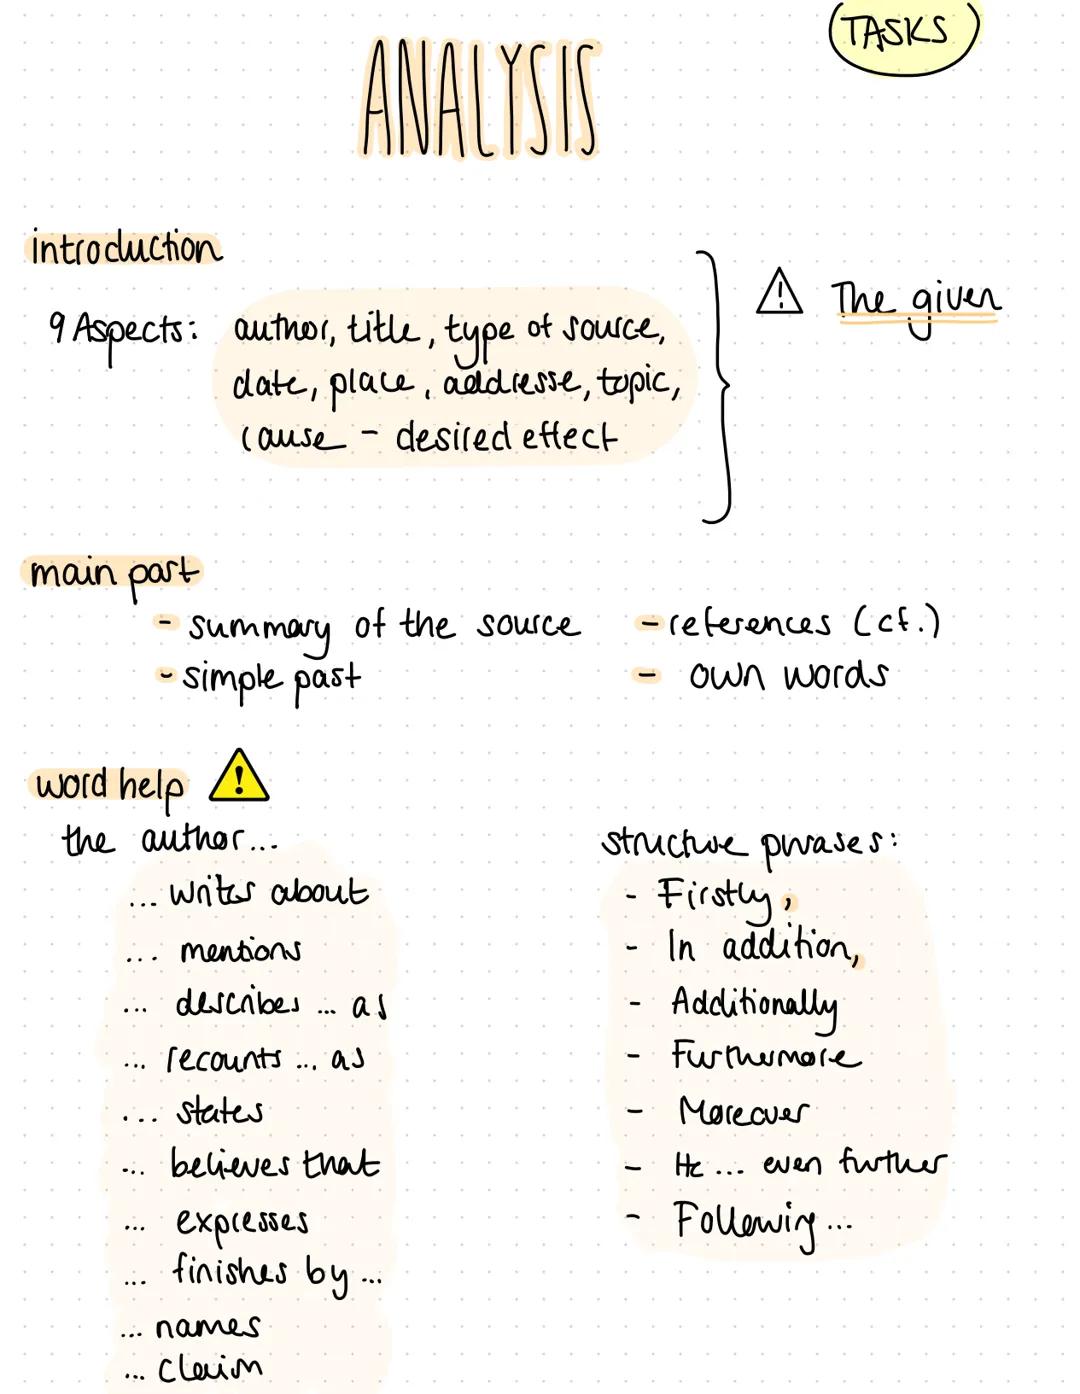 TASKS
ANALYSIS
introduction
9 Aspects: author, title, type of source,
date, place, addresse, topic,
cause - desired effect
The given
main part
- summary of the source
- simple past
- references (cf.)
- own words
word help
the author...
... writes about
... mentions
... describes ... as
... recounts ... as
... states
... believes that
... expresses
... finishes by ...
... names
... claim
structure phrases:
- Firstly,
- In addition,
- Additionally
- Furthermore
- Moreover
- He ... even further
- Following ...